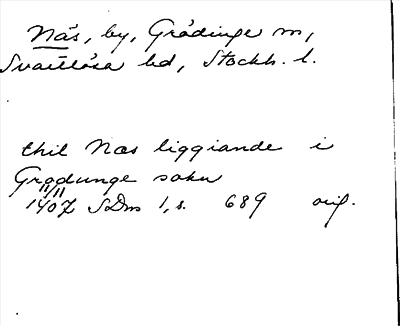 Näs, by, Grödinge sn,
Svartlösa hd, Stockh. l.
thil Næs liggiande i
Grødunge sokn
11/11
1407 SDns 1, s. 689 orig.